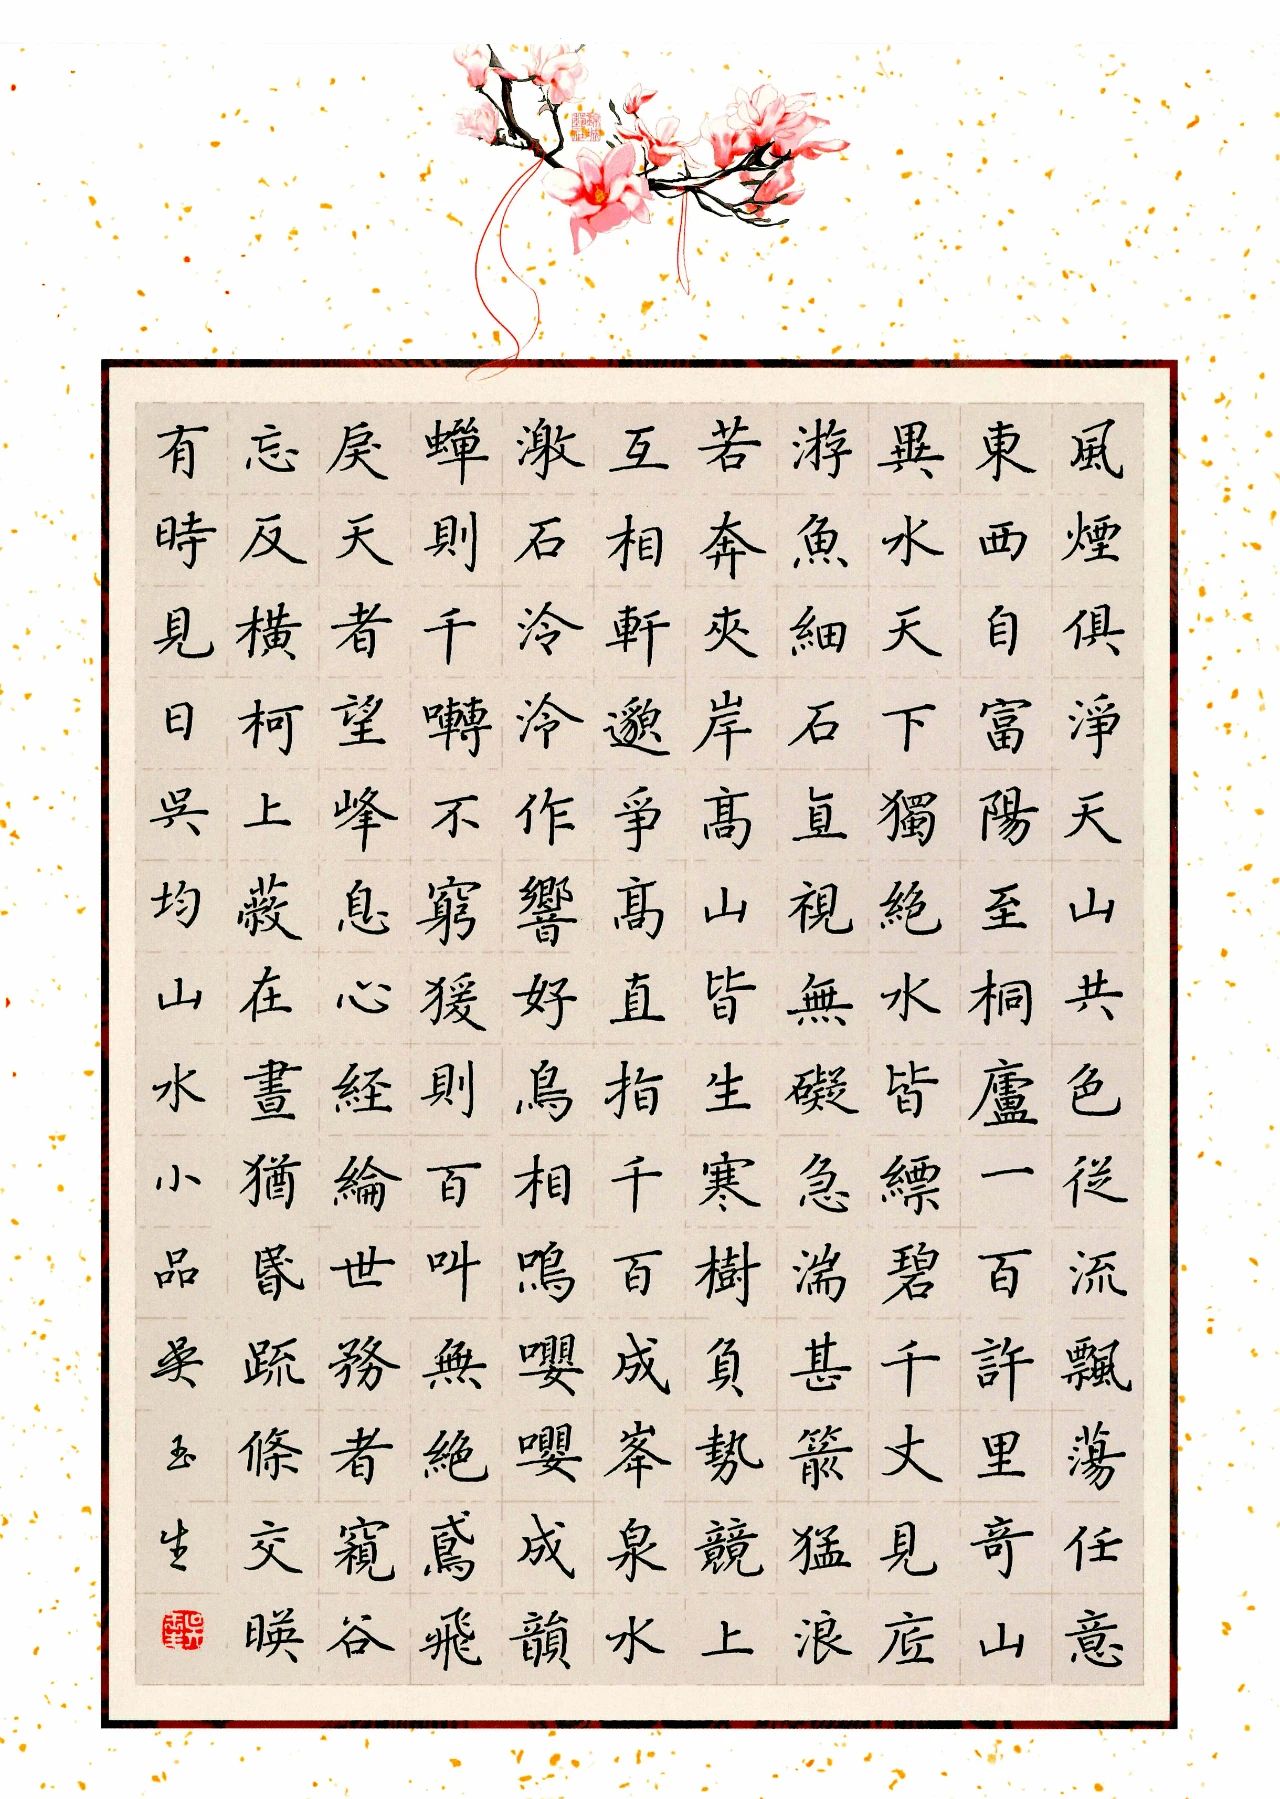 風煙俱淨天山共色從流飄蕩任意
東西自富陽至桐廬一百許里奇山
異水天下獨絕水皆縹碧千丈見底
游魚細石直視無礙急湍甚箭猛浪
若奔夾岸高山皆生寒樹負勢競上
互相軒邈爭高直指千百成峯泉水
激石泠泠作響好鳥相鳴嚶嚶成韻
蟬則千囀不窮猨則百叫無絕鳶飛
戾天者望峰息心経綸世務者窺谷
忘反橫柯上蔽在晝猶昏疏條交暎
有時見日吳均山水小品吳玉生